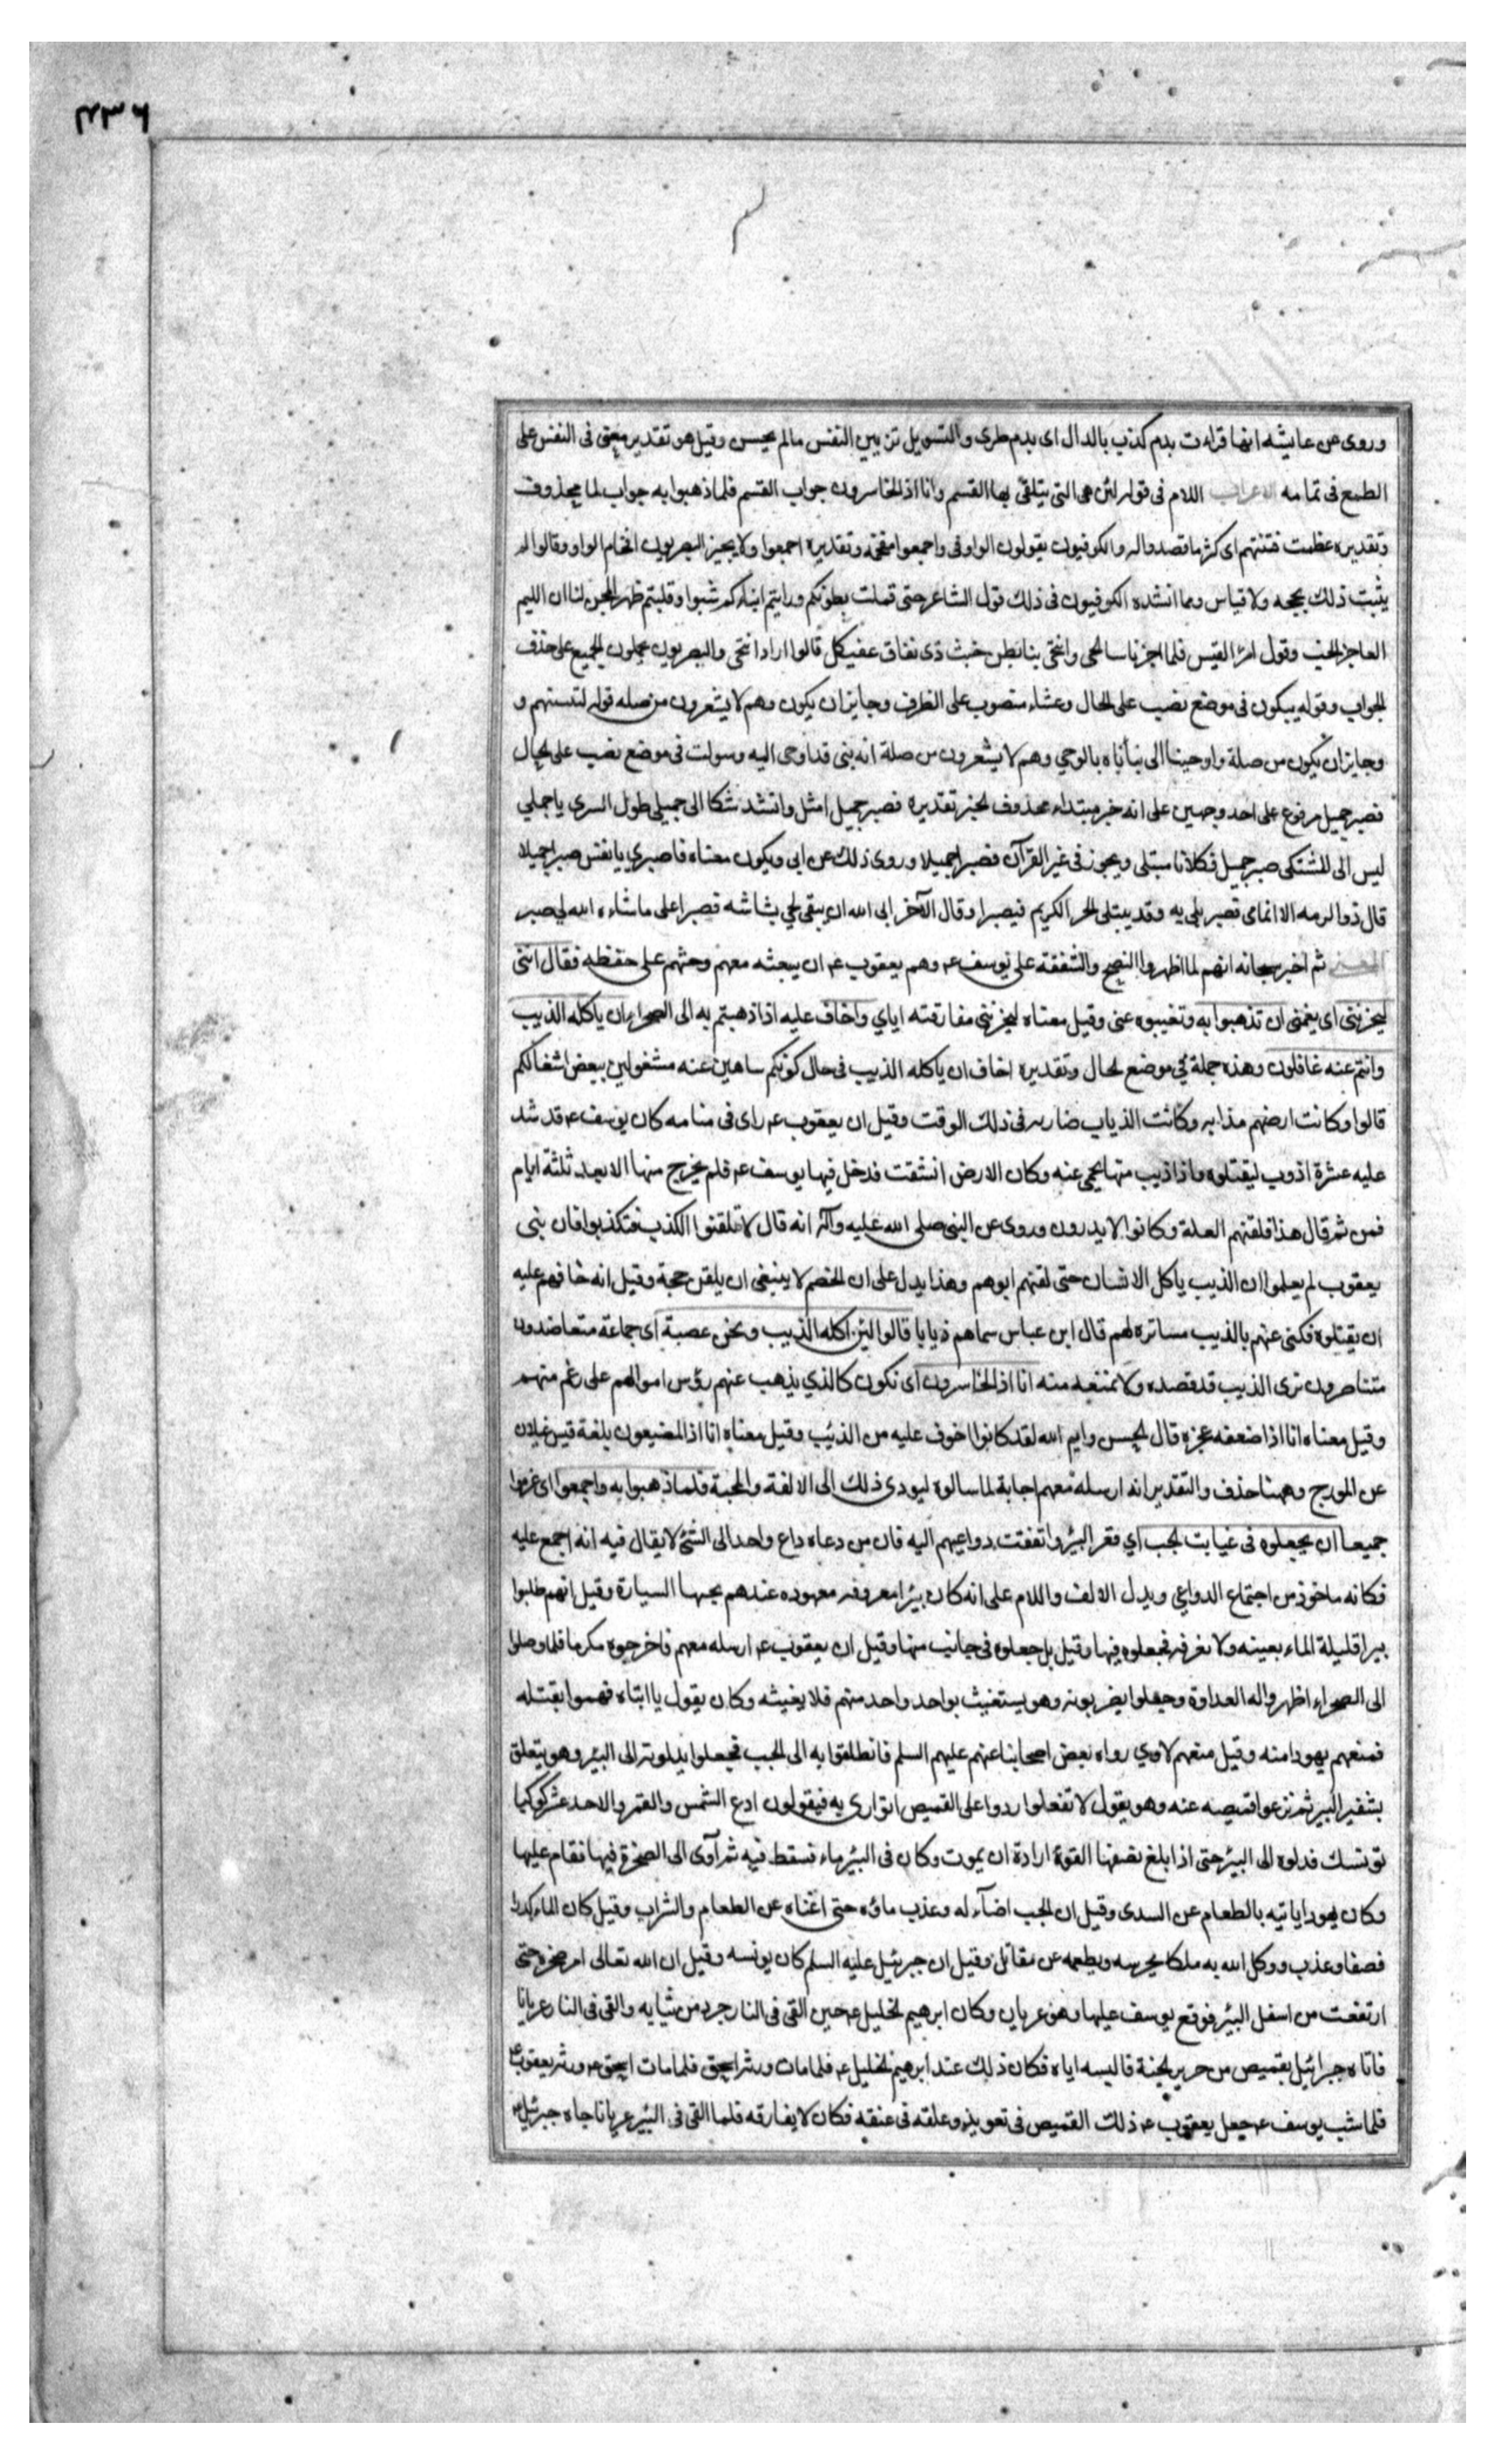 وروى عن عايشه انها قراءت بدم كدب بالدال اى بدم طرى والتسويل تزيين النفس مالم يحسن وقيل هو تقدير معنى فى النفس على
الطمع فى تمامه الاعراب اللام فى قوله لئن هى التى يتلقى بها القسم وانا اذا لخاسرون جواب القسم فلما ذهبوا به جواب لما محذوف
وتقديره عظمت فتنتهم اى كثر ما قصدوا له والكوفيون يقولون الواو فى واجمعوا مقحمة وتقديره اجمعوا ولا يجيز البصريون اقحام الواو وقالوا لم
يثبت ذلك بحجه ولا قياس ومما انشده الكوفيون فى ذلك قول الشاعر حتى قملت بطونكم ورايتم ابناءكم شبوا وقلبتم ظهر المجن لنا ان الليم
العاجز الخب وقول امرا القيس فلما اجزنا ساحة الحى وانتحى بنا بطن خبث ذى نفاق عفيكل قالوا اراد انتحى والبصريون يحملون الجميع على حذف
الجواب وقوله يبكون فى موضع نصب على الحال وعشاء منصوب على الظرف وجايز ان يكون وهم لا يشعرون من صله قوله لتنبئنهم و
وجايز ان يكون من صلة واوحينا الى نبأناه بالوحي وهم لا يشعرون من صلة انه بنى قد اوحى اليه وسولت فى موضع نصب على الحال
فصبر جميل مرفوع على احد وجهين على انه خبر مبتداء محذوف لخبر تقديره فصبر جميل امثل وانشد شكا الى جميلى طول السرى يا جملي
ليس الى المشتكى صبر جميل فكلانا مبتلى ويجوز فى غير القرآن فصبرا جميلا وروى ذلك عن ابى ويكون معناه فاصبري يا نفس صبرا جميلا
قال ذو الرمه الا انما مى فصبر بلى به وقد يبتلى الحر الكريم فيصبرا وقال الآخر ابى الله ان يبقى لحي بشاشه فصبرا على ما شاءه الله لي صبر
المعنى ثم اخبر سبحانه انهم لما اظهروا النصح والشفقة على يوسف ع وهم يعقوب ع ان يبعثه معهم وحثهم على حفظه فقال اننى
ليحزننى اى يغمنى ان تذهبوا به وتغيبوه عنى وقيل معناه ليحزننى مفارقته اياي واخاف عليه اذا ذهبتم به الى الصحرا ان ياكله الذيب
وانتم عنه غافلون وهذه جملة في موضع الحال وتقديره اخاف ان ياكله الذيب فى حال كونكم ساهين عنه مشغولين ببعض اشغالكم
قالوا وكانت ارضهم مذابه وكانت الذياب ضاريه فى ذلك الوقت وقيل ان يعقوب ع راى فى منامه كان يوسف ع قد شد
عليه عشرة اذوب ليقتلوه واذا ذيب منها يحمي عنه وكان الارض انشقت فدخل فيها يوسف ع فلم يخرج منها الا بعد ثلثة ايام
فمن ثم قال هذا فلقنهم العلة وكانوا لا يدرون وروى عن النبى صلى الله عليه وآله انه قال لا تلقنوا الكذب فتكذبوا فان بنى
يعقوب لم يعلموا ان الذيب ياكل الانسان حتى لقنهم ابوهم وهذا يدل على ان الخصم لا ينبغى ان يلقن حجة وقيل انه خافهم عليه
ان يقتلوه فكنى عنهم بالذيب مساترة لهم قال ابن عباس سماهم ذيابا قالوا لئن اكله الذيب ونحن عصبة اى جماعة متعاضدون
متناصرون نرى الذيب قد قصده ولا نمنعه منه انا اذا لخاسرون اى نكون كالذي يذهب عنهم رؤس اموالهم على رغم منهم
وقيل معناه انا اذا ضعفه عجزه قال الحسن وايم الله لقد كانوا اخوف عليه من الذئب وقيل معناه انا اذا لمضيعون بلغة قيس غيلان
عن المورج وههنا حذف والتقدير انه ارسله معهم اجابة لما سالوه ليودى ذلك الى الالفة والمحبة فلما ذهبوا به واجمعوا اى عزموا
جميعا ان يجعلوه فى غيابت الجب اي قعر البئر واتفقت دواعيهم اليه فان من دعاه داع واحد الى الشئ لا يقال فيه انه اجمع عليه
فكانه ماخوذ من اجتماع الدواعي ويدل الالف واللام على انه كان بيرا معروفه معهوده عندهم يجيها السيارة وقيل انهم طلبوا
بيرا قليلة الماء بعينه ولا تغرقه فجعلوه فيها وقيل بل جعلوه فى جانب منها وقيل ان يعقوب ع ارسله معهم فاخرجوه مكرما فلما وصلوا
الى الصحراء اظهروا له العداوة وجعلوا يضربونه وهو يستغيث بواحد واحد منهم فلا يغيثه وكان يقول يا ابتاه فهموا بقتله
فمنعهم يهودا منه وقيل منعهم لاوي رواه بعض اصحابنا عنهم عليهم السلم فانطلقوا به الى الجب فجعلوا يدلونه الى البير وهو يتعلق
بشفير البير ثم نزعوا قميصه عنه وهو يقول لا تفعلوا ردوا على القميص اتوارى به فيقولون ادع الشمس والقمر والاحد عشر كوكبا
تونسك فدلوه الى البير حتى اذا بلغ نصفها القوه ارادة ان يموت وكان فى البئر ماء فسقط فيه ثم آوى الى الصخرة فيها فقام عليها
وكان يهودا ياتيه بالطعام عن السدى وقيل ان الجب اضاء له وعذب ماؤه حتى اغناه عن الطعام والشراب وقيل كان الماء كدرا
فصفا وعذب ووكل الله به ملكا يحرسه ويطعمه عن مقاتل وقيل ان جبرئيل عليه السلم كان يونسه وقيل ان الله تعالى امر صخره حتى
ارتفعت من اسفل البئر فوقع يوسف عليها وهو عريان وكان ابرهيم الخليل ع حين القى فى النار جرد من ثيابه والقى فى النار عريانا
فاتاه جبرائيل بقميص من حرير الجنة فالبسه اياه فكان ذلك عند ابرهيم الخليل ع فلما مات ورثه اسحق فلما مات اسحق ع ورثه يعقوب ع
فلما شب يوسف ع جعل يعقوب ع ذلك القميص فى تعويذ وعلقه فى عنقه فكان لا يفارقه فلما القى فى البئر عريانا جاه جبرئيل ع